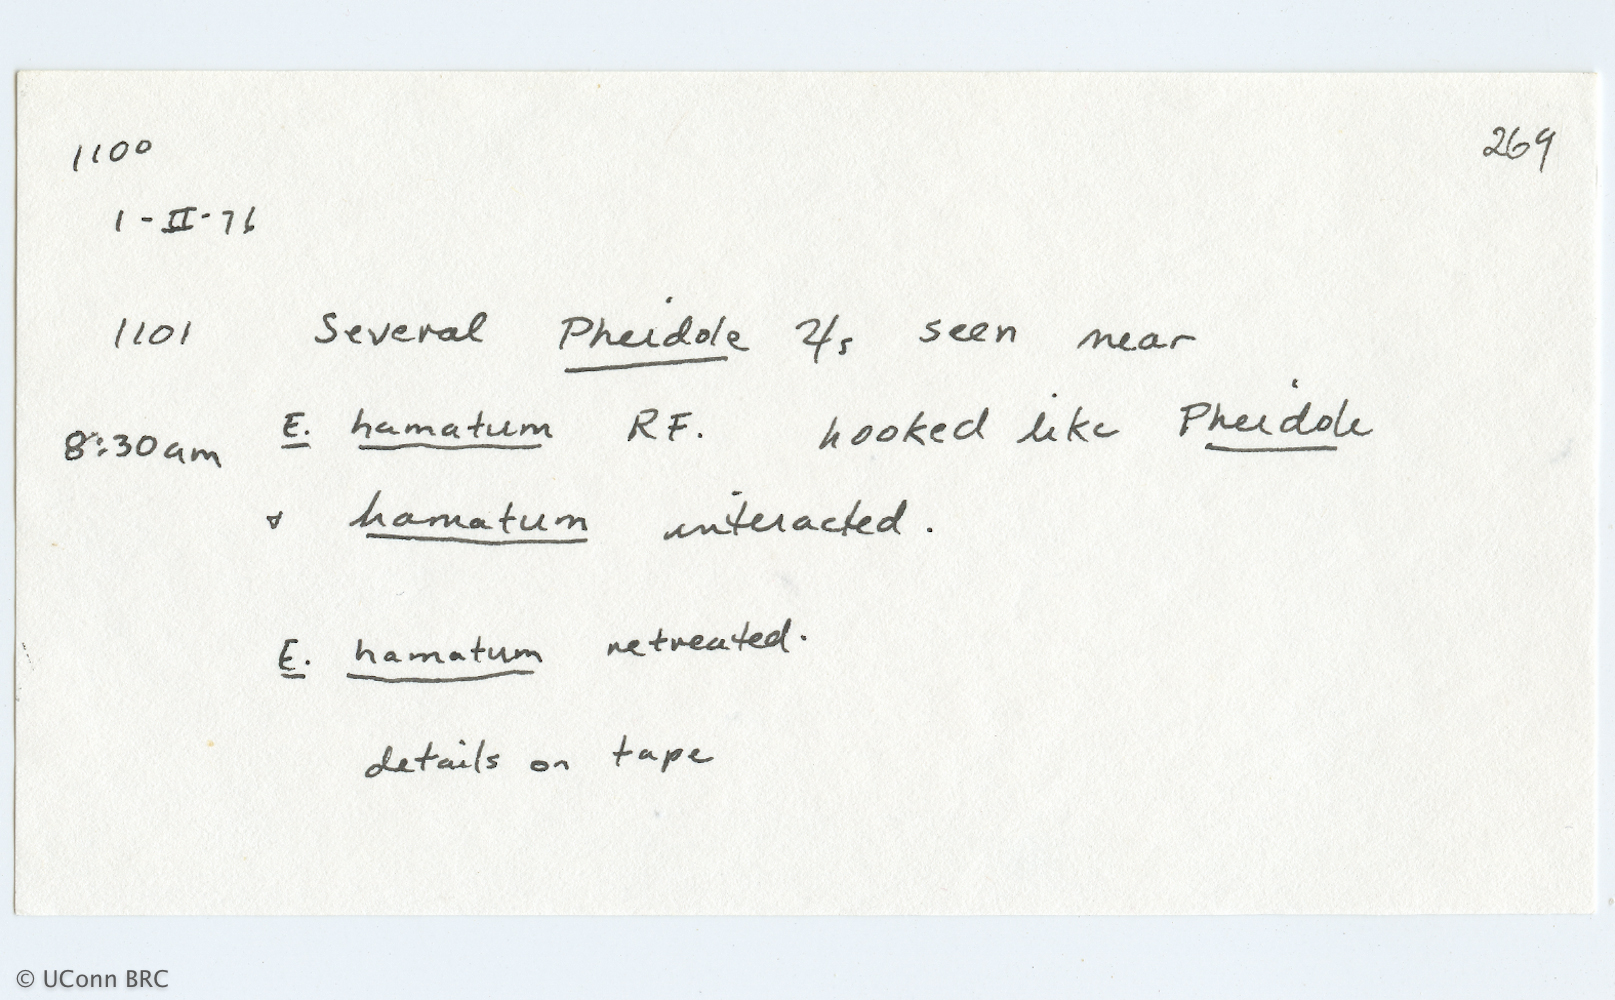 1100
269
1-II-76
1101 Several Pheidole 2/s seen near
8:30am E. hamatum RF. hooked like Pheidole
& hamatum interacted.
E. hamatum retreated.
details on tape
© UConn BRC